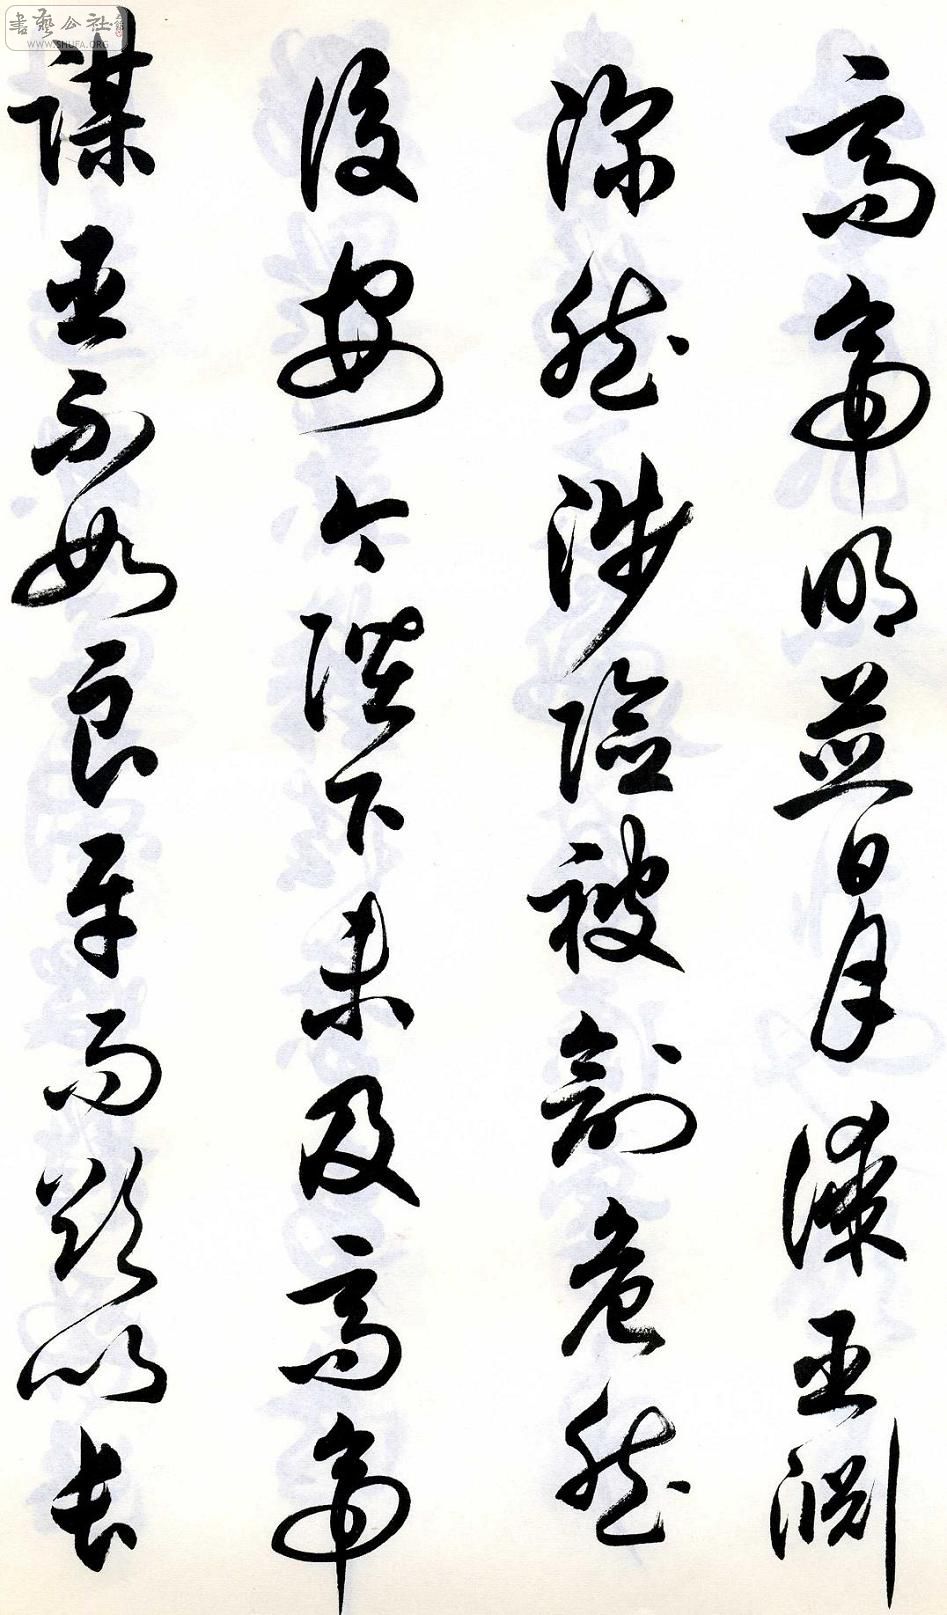 高帝明並日月謀臣淵
深然涉險被創危然
後安今陛下未及高帝
謀臣不如良平而欲以長
書藝公社
WWW.SHUFA.ORG